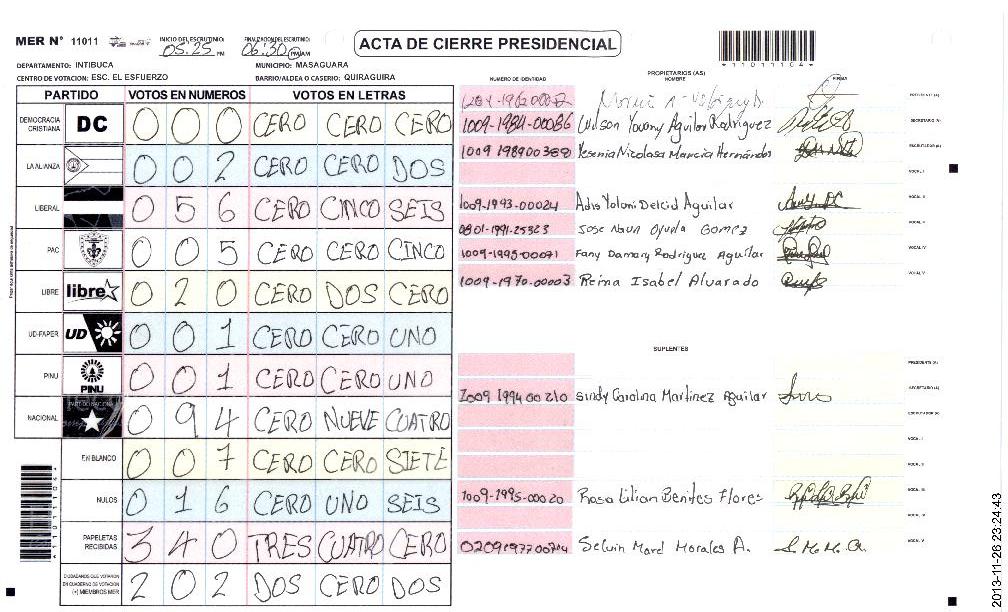 MER N° 11011
INICIO DEL ESCRUTINIO: 05:25 PM
FINALIZACION DEL ESCRUTINIO: 06:30 PM AM
ACTA DE CIERRE PRESIDENCIAL
*11011104*
DEPARTAMENTO: INTIBUCA
MUNICIPIO: MASAGUARA
CENTRO DE VOTACION: ESC. EL ESFUERZO
BARRIO/ALDEA O CASERIO: QUIRAGUIRA
PARTIDO VOTOS EN NUMEROS VOTOS EN LETRAS
DEMOCRACIA CRISTIANA DC 0 0 0 CERO CERO CERO
LA ALIANZA 0 0 2 CERO CERO DOS
LIBERAL 0 5 6 CERO CINCO SEIS
PAC 0 0 5 CERO CERO CINCO
LIBRE libre 0 2 0 CERO DOS CERO
UD-FAPER UD 0 0 1 CERO CERO UNO
PINU PINU 0 0 1 CERO CERO UNO
NACIONAL 0 9 4 CERO NUEVE CUATRO
EN BLANCO 0 0 7 CERO CERO SIETE
NULOS 0 1 6 CERO UNO SEIS
PAPELETAS RECIBIDAS 3 4 0 TRES CUATRO CERO
CIUDADANOS QUE VOTARON EN CUADERNO DE VOTACION (+) MIEMBROS MER 2 0 2 DOS CERO DOS
NUMERO DE IDENTIDAD PROPIETARIOS (AS) NOMBRE FIRMA
PRESIDENTE (A)
1009-1984-00086 Wilson Yovany Aguilar Rodriguez SECRETARIO (A)
1009 198900380 Yesenia Nicolasa Mancia Hernández ESCRUTADOR (A)
VOCAL I
1009-1993-00024 Adis Yoloni Delcid Aguilar VOCAL II
0801-1991-25323 Jose Naun Oyuela Gomez VOCAL III
1009-1995-00071 Fany Damary Rodriguez Aguilar VOCAL IV
1009-1970-00003 Reina Isabel Alvarado VOCAL V
SUPLENTES
PRESIDENTE (A)
1009 1994 00210 Sindy Carolina Martinez Aguilar SECRETARIO (A)
ESCRUTADOR (A)
VOCAL I
VOCAL II
1009-1995-00020 Rosa Lilian Benites Flores VOCAL III
VOCAL IV
Selvin Marel Morales A. S.M.M.A. VOCAL V
2013-11-26 23:24:43